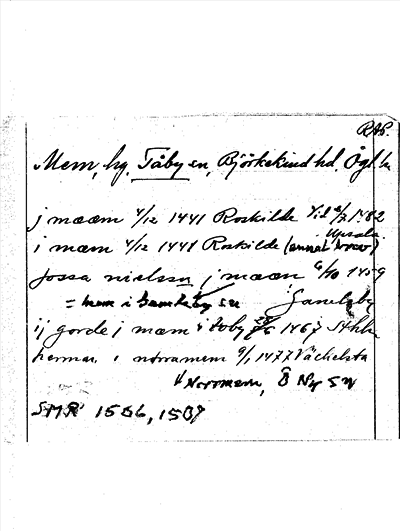 RAP.
Mem, hg, Tåby sn, Björkekind hd, Ögl. ln
j mææm 4/12 1441 Roskilde Vid 2/7 1482
Upsala
i mæm 4/12 1441 Roskilde (annat brev)
Jossa nielssn j mææn 6/10 1459
= mem i Gamleby sn Gamleby
ij gorde j mæm i toby 1467 Sthlm
herman i norramem 9/1 1477 Väckelsta
Norrmem, Ö Ny sn
SMR 1506, 1507